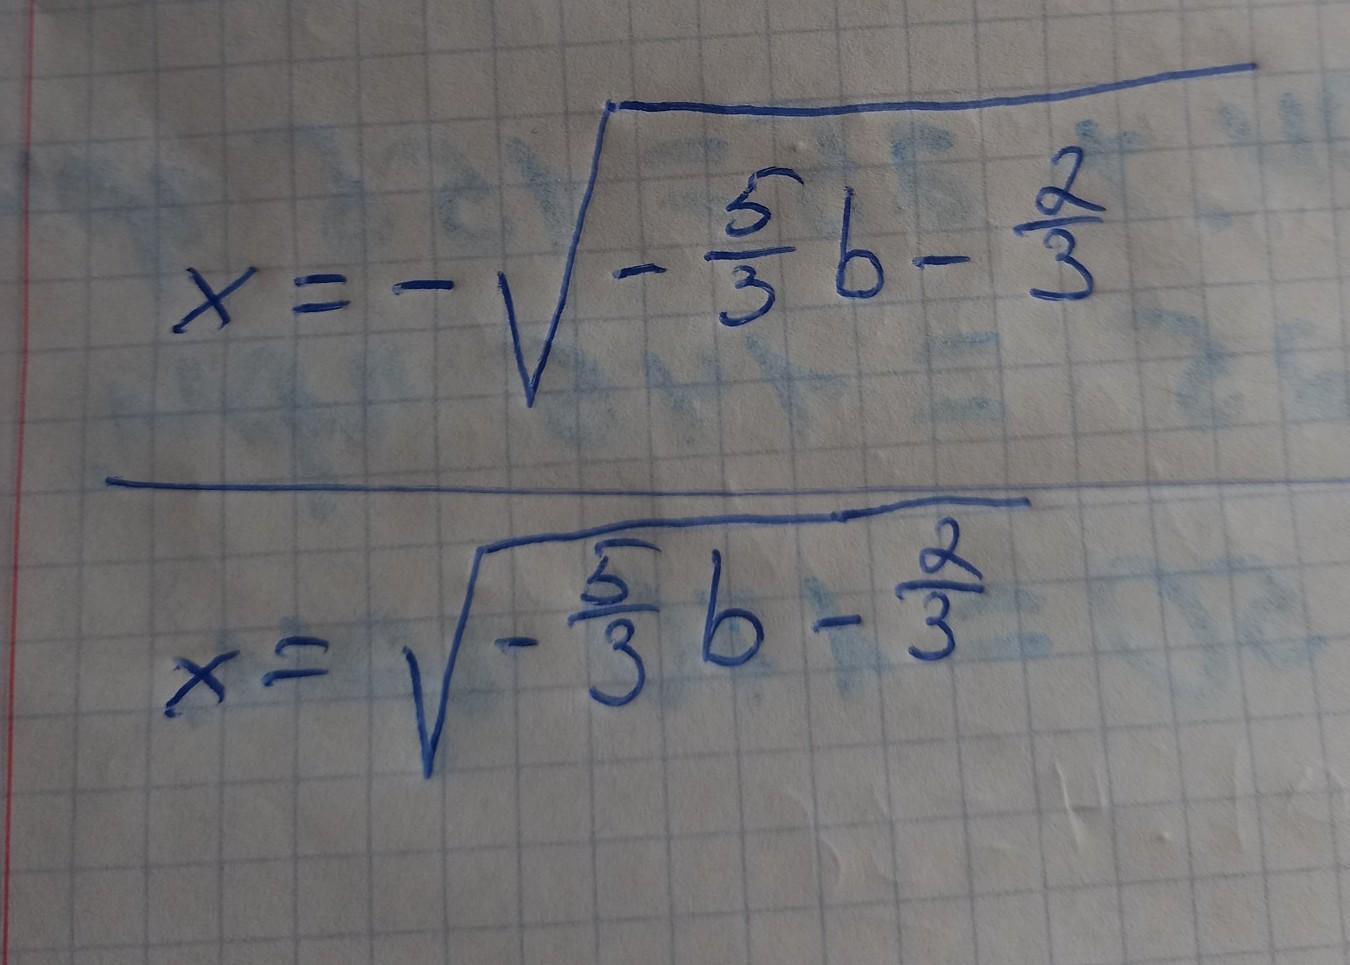 x = - √(- 5/3 b - 2/3)
x = √(- 5/3 b - 2/3)